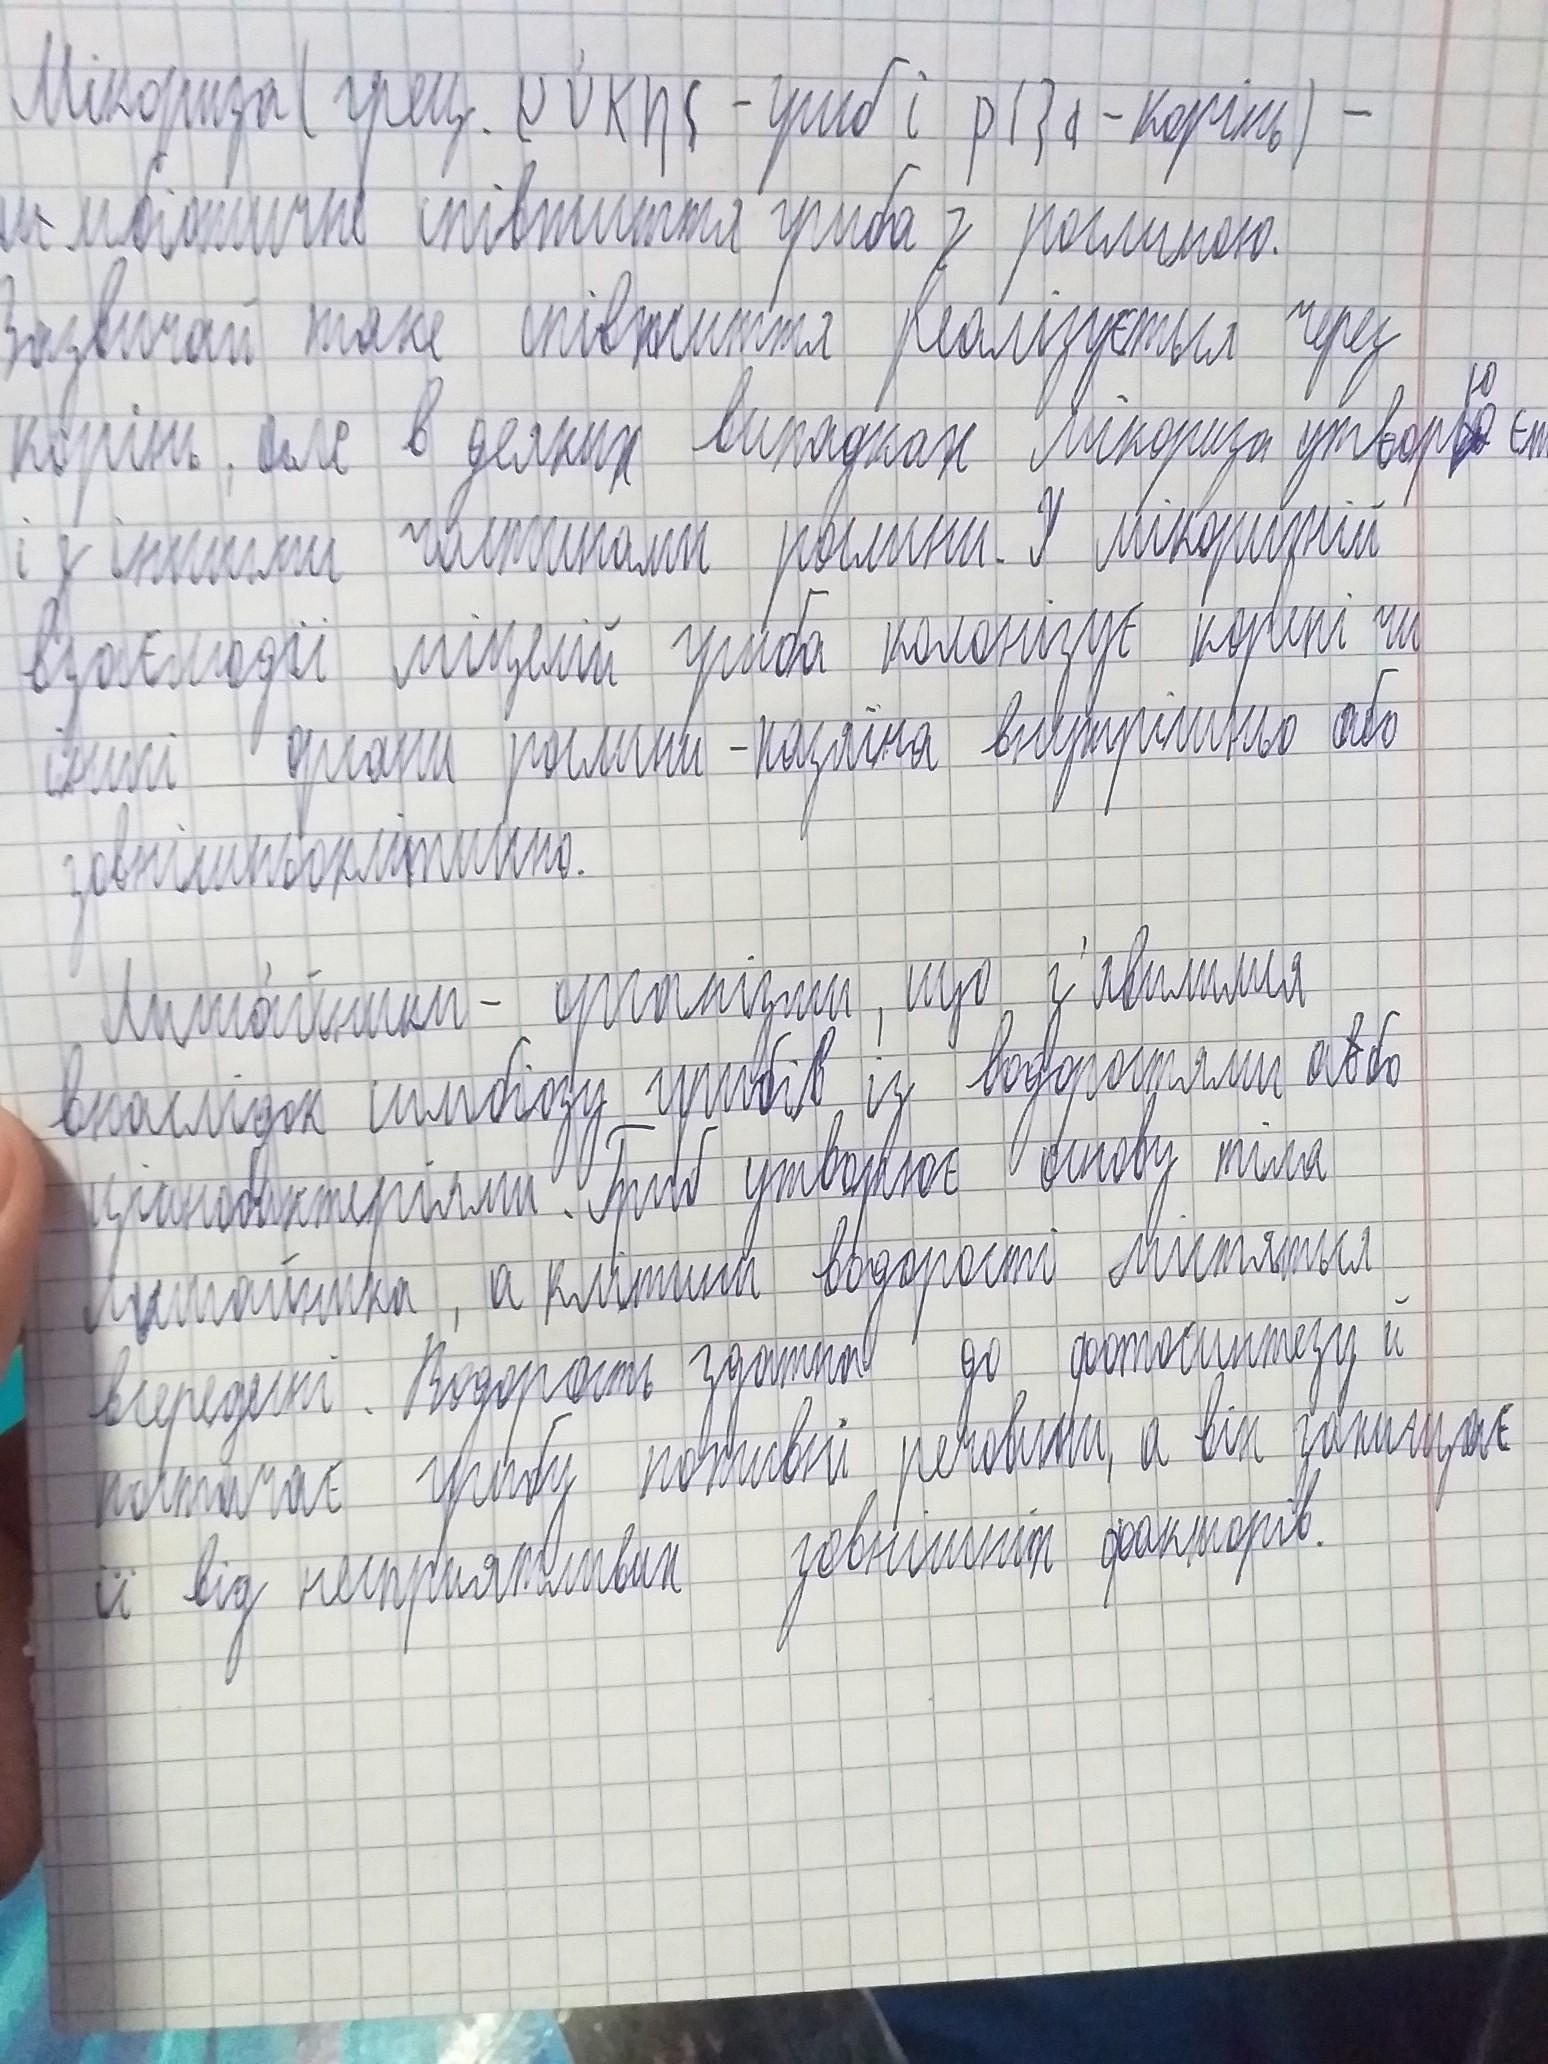 Мікориза (грец. μύκης - гриб і ρίζα - корінь) -
симбіотичне співжиття гриба з рослиною.
Зазвичай таке співжиття реалізується через
корінь, але в деяких випадках мікориза утворюєт
і з іншими частинами рослини. У мікоризній
взаємодії міцелій гриба колонізує корені чи
інші органи рослини-хазяїна внутрішньо або
зовнішньоклітинно.
Лиша́йники - організми, що з'явилися
внаслідок симбіозу грибів із водоростями або
ціанобактеріями. Гриб утворює основу тіла
лишайника, а клітини водорості містяться
всередині. Водорость здатна до фотосинтезу й
постачає грибу поживні речовини, а він захищає
її від несприятливих зовнішніх факторів.